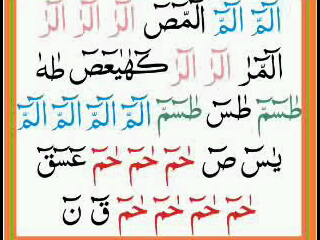 الٓمّٓ الٓمّٓ الٓمّٓصٓ الٓرٰ الٓرٰ الٓرٰ
الٓمّٓرٰ الٓرٰ الٓرٰ كٓهٰيٰعٓصٓ طٰهٰ
طٰسٓمّٓ طٰسٓ طٰسٓمّٓ الٓمّٓ الٓمّٓ الٓمّٓ الٓمّٓ
يٰسٓ صٓ حٰمٓ حٰمٓ حٰمٓ عٓسٓقٓ
حٰمٓ حٰمٓ حٰمٓ حٰمٓ قٓ نٓ